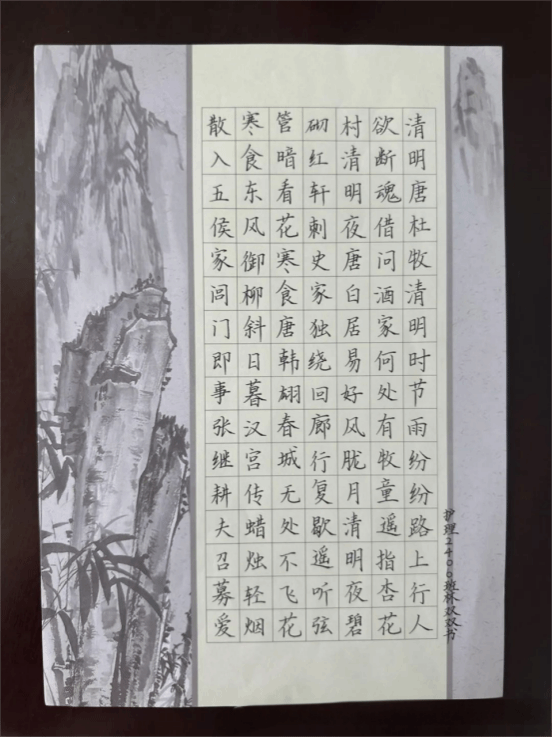 清明唐杜牧清明时节雨纷纷路上行人
欲断魂借问酒家何处有牧童遥指杏花
村清明夜唐白居易好风胧月清明夜碧
砌红轩刺史家独绕回廊行复歇遥听弦
管暗看花寒食唐韩翃春城无处不飞花
寒食东风御柳斜日暮汉宫传蜡烛轻烟
散入五侯家闾门即事张继耕夫召募爱
护理2406班林双双书